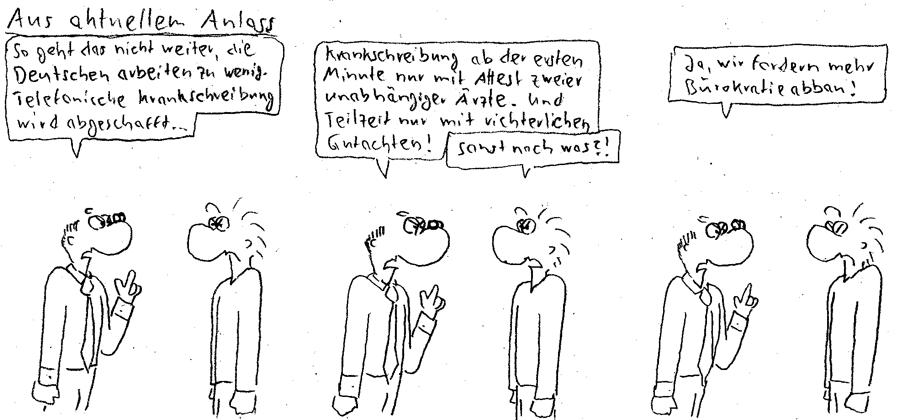 Aus aktuellem Anlass
So geht das nicht weiter, die
Deutschen arbeiten zu wenig.
Telefonische Krankschreibung
wird abgeschafft...
Krankschreibung ab der ersten
Minute nur mit Attest zweier
unabhängiger Ärzte. Und
Teilzeit nur mit richterlichen
Gutachten!
Sonst noch was?!
Ja, wir fordern mehr
Bürokratieabbau!